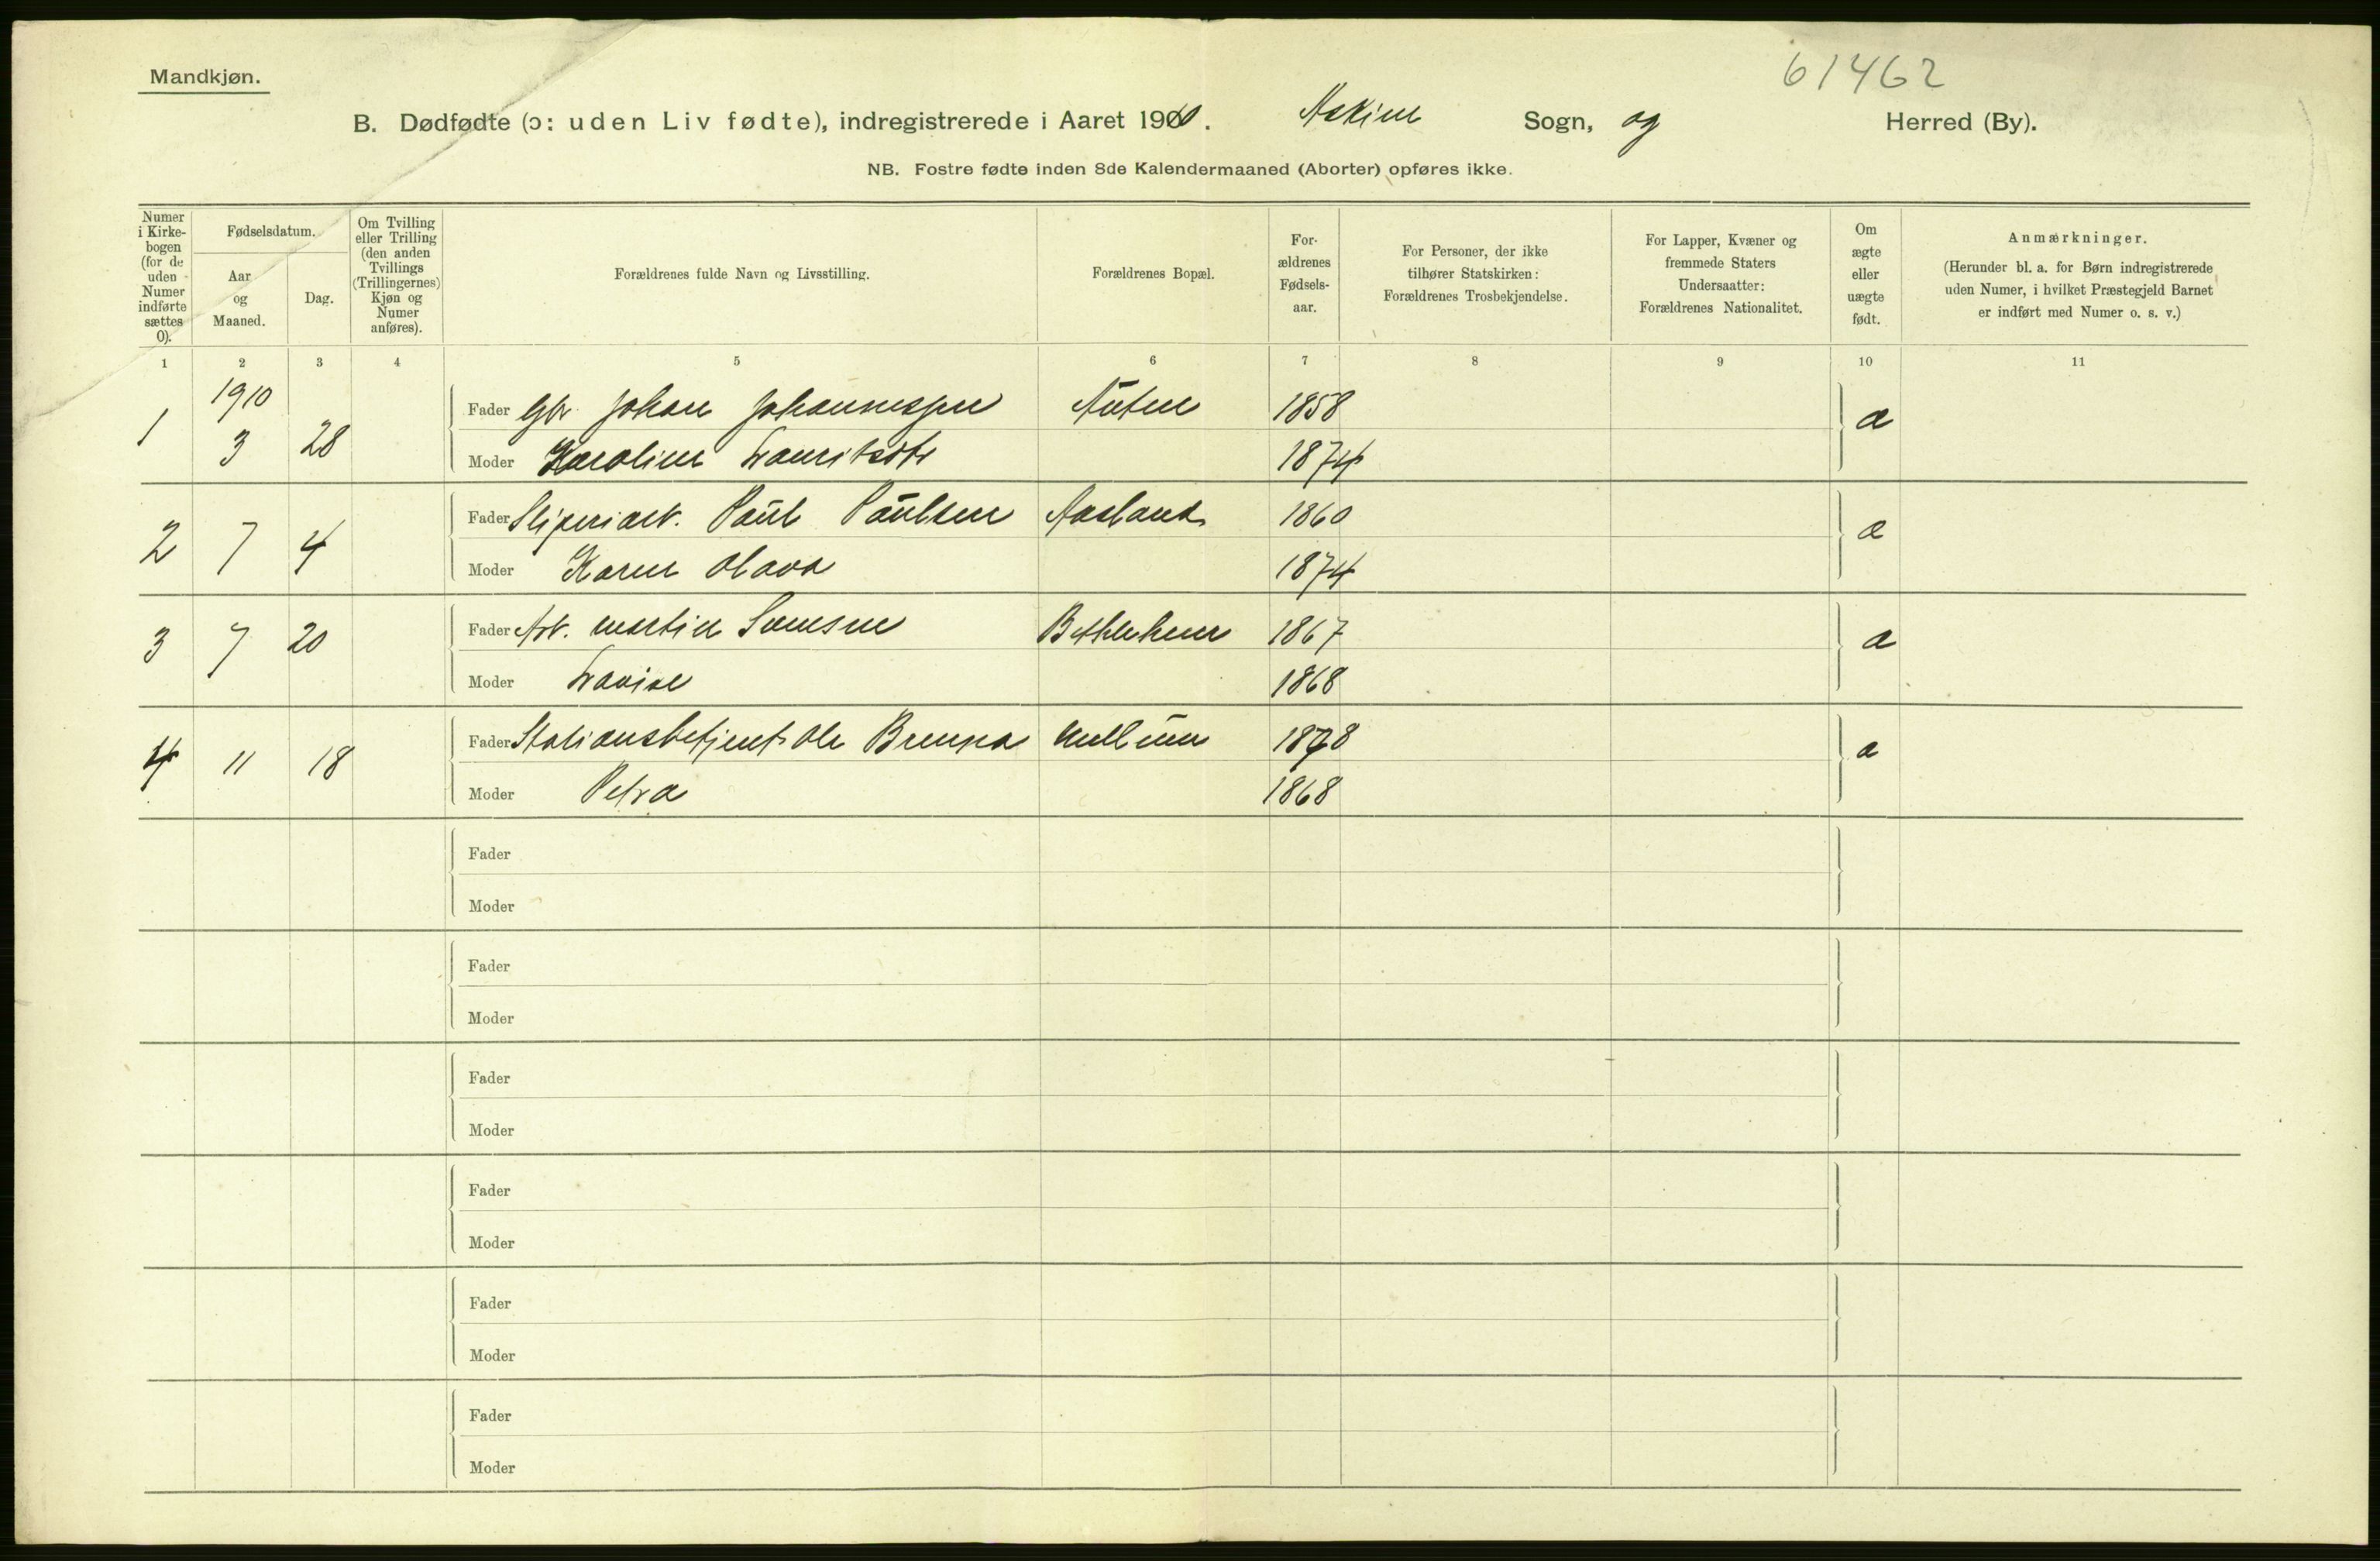 Mandkjøn.
61462
B. Dødfødte (ɔ: uden Liv fødte), indregistrerede i Aaret 1910. Askim Sogn, og Herred (By).
NB. Fostre fødte inden 8de Kalendermaaned (Aborter) opføres ikke.
Numer i Kirkebogen (for de uden Numer indførte sættes 0).
Fødselsdatum.
Aar og Maaned.
Dag.
Om Tvilling eller Trilling (den anden Tvillings (Trillingernes) Kjøn og Numer anføres).
Forældrenes fulde Navn og Livsstilling.
Forældrenes Bopæl.
Forældrenes Fødselsaar.
For Personer, der ikke tilhører Statskirken: Forældrenes Trosbekjendelse.
For Lapper, Kvæner og fremmede Staters Undersaatter: Forældrenes Nationalitet.
Om ægte eller uægte født.
Anmærkninger.
(Herunder bl. a. for Børn indregistrerede uden Numer, i hvilket Præstegjeld Barnet er indført med Numer o. s. v.)
1 2 3 4 5 6 7 8 9 10 11
1910
1 3 28 Fader Gbr. Johan Johannessen 1858 æ
Moder Karoline Lauritsdtr 1874
2 7 4 Fader Sliperiarb. Paul Paulsen Aasland 1860 æ
Moder Karen Olava 1874
3 7 20 Fader Arb. Martin Bethlehem 1867 æ
Moder Lovise 1868
4 11 18 Fader Stationsbetjent Ole Brenna 1878 æ
Moder Petra 1868
Fader
Moder
Fader
Moder
Fader
Moder
Fader
Moder
Fader
Moder
Fader
Moder